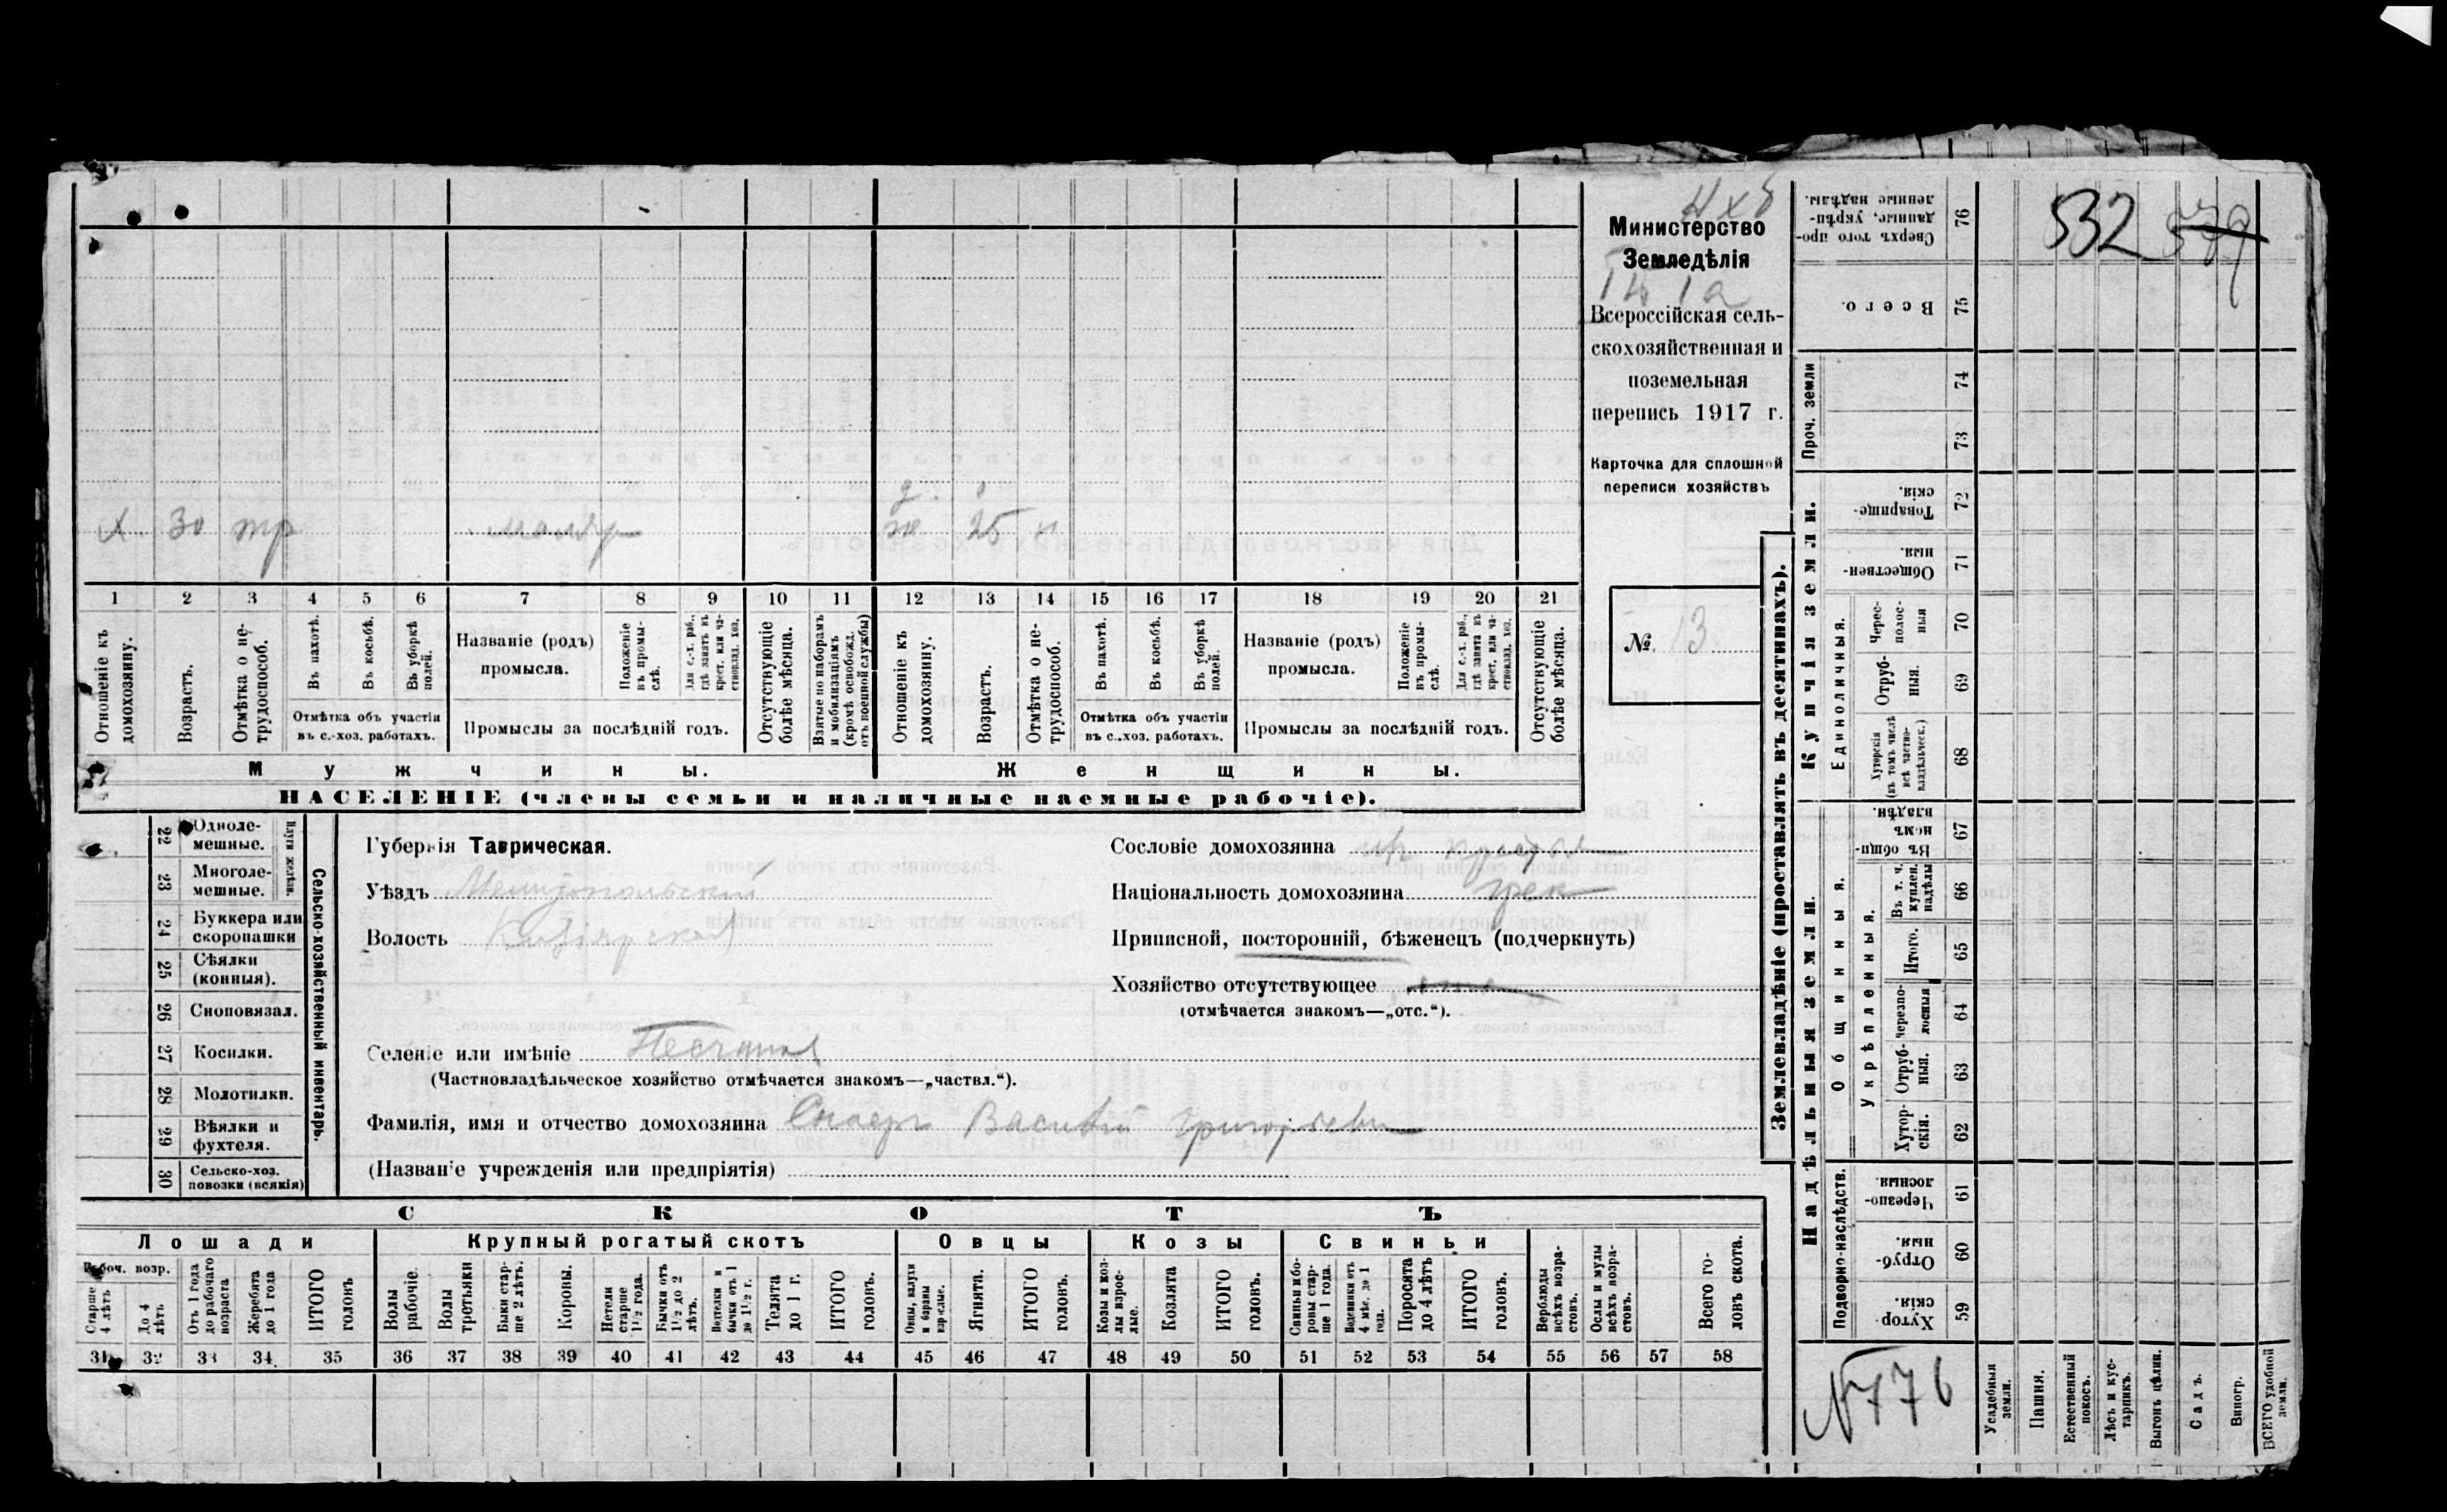 Министерство
Земледѣлія
Всероссійская сель-
скохозяйственная и
поземельная
перепись 1917 г.
Карточка для сплошной
переписи хозяйствъ
№ 13
532 579
Х 30 тр маляр ж 25 н
1 2 3 4 5 6 7 8 9 10 11 12 13 14 15 16 17 18 19 20 21
Отношеніе къ домохозяину.
Возрастъ.
Отмѣтка о не-трудоспособ.
Въ пахотѣ.
Въ косьбѣ.
Въ уборкѣ полей.
Отмѣтка объ участіи
въ с.-хоз. работахъ.
Названіе (родъ)
промысла.
Положеніе въ промы-слѣ.
Для с.-х. раб., гдѣ занятъ въ крест. или ча-стновлад. хоз.
Промыслы за послѣдній годъ.
Отсутствующіе болѣе мѣсяца.
Взятые по наборамъ и мобилизаціямъ (кромѣ освобожд. отъ военной службы)
Отношеніе къ домохозяину.
Возрастъ.
Отмѣтка о не-трудоспособ.
Въ пахотѣ.
Въ косьбѣ.
Въ уборкѣ полей.
Отмѣтка объ участіи
въ с.-хоз. работахъ.
Названіе (родъ)
промысла.
Положеніе въ промы-слѣ.
Для с.-х. раб., гдѣ занята въ крест. или ча-стновлад. хоз.
Промыслы за послѣдній годъ.
Отсутствующіе болѣе мѣсяца.
Мужчины. Женщины.
НАСЕЛЕНІЕ (члены семьи и наличные наемные рабочіе).
Сельско-хозяйственный инвентарь.
Плуги желѣзн.
22 Одноле-мешные.
23 Многоле-мешные.
24 Буккера или скоропашки
25 Сѣялки (конныя).
26 Сноповязал.
27 Косилки.
28 Молотилки.
29 Вѣялки и фухтеля.
30 Сельско-хоз. повозки (всякія)
Губернія Таврическая.
Уѣздъ Мелитопольский
Волость Кизіярская
Сословіе домохозяина из крестьян
Національность домохозяина грек
Приписной, посторонній, бѣженецъ (подчеркнуть)
Хозяйство отсутствующее
(отмѣчается знакомъ—„отс.“).
Селеніе или имѣніе Песчаная
(Частновладѣльческое хозяйство отмѣчается знакомъ—„частвл.“).
Фамилія, имя и отчество домохозяина Василій Григорьевич
(Названіе учрежденія или предпріятія)
СКОТЪ
Лошади Крупный рогатый скотъ Овцы Козы Свиньи
Рабоч. возр.
Старше 4 лѣтъ
До 4 лѣтъ
Отъ 1 года до рабочаго возраста
Жеребята до 1 года
ИТОГО головъ
Волы рабочіе.
Волы третьяки
Быки стар-ше 2 лѣтъ.
Коровы.
Нетели старше 1½ года.
Бычки отъ 1½ до 2 лѣтъ.
Подтелки и бычки отъ 1 до 1½ г.
Телята до 1 г.
ИТОГО головъ.
Овцы, валухи и бараны взрослые.
Ягнята.
ИТОГО головъ.
Козы и коз-лы взрос-лые.
Козлята
ИТОГО головъ.
Свиньи и бо-ровы стар-ше 1 года.
Подсвинки отъ 4 мѣс. до 1 года.
Поросята до 4 лѣтъ
ИТОГО головъ.
Верблюды всѣхъ возра-стовъ.
Ослы и мулы всѣхъ возра-стовъ.
Всего го-ловъ скота.
31 32 33 34 35 36 37 38 39 40 41 42 43 44 45 46 47 48 49 50 51 52 53 54 55 56 57 58
Землевладѣніе (проставлять въ десятинахъ).
Надѣльныя земли. Купчія земли. Проч. земли
Подворно-наслѣдств.
Общинныя.
Укрѣпленныя.
Единоличныя.
76 Сверхъ того про-данные, укрѣп-ленные надѣлы.
75 Всего.
74
73
72 Товарище-скія.
71 Обществен-ныя.
70 Черес-полос-ныя
69 Отруб-ныя.
68 Хуторскія (въ томъ числѣ всѣ частно-владѣльческ.)
67 Въ общи-номъ владѣн.
66 Въ т. ч. куплен. надѣлы
65 Итого.
64 Черезпо-лосныя
63 Отруб-ныя.
62 Хутор-скія.
61 Черезпо-лосныя.
60 Отруб-ныя.
59 Хутор-скія.
№ 776
Усадебныя земли.
Пашня.
Естественный покосъ.
Лѣсъ и кус-тарникъ.
Выгонъ цѣлин.
Садъ.
Виногр.
ВСЕГО удобной земли.